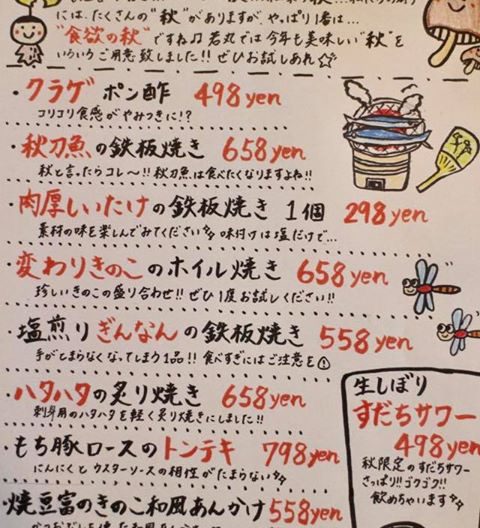 には、たくさんの"秋"がありますが、やっぱり1番は…
"食欲の秋"ですね♫ 若丸では今年も美味しい"秋"を
いろいろご用意致しました!! ぜひお試しあれ☆
・クラゲ ポン酢 498yen
コリコリ食感がやみつきに!?
・秋刀魚の鉄板焼き 658yen
秋と言ったらコレ〜!! 秋刀魚は食べたくなりますよね!!
・肉厚しいたけの鉄板焼き 1個 298yen
素材の味を楽しんでみてください 味付けは塩だけで…
・変わりきのこのホイル焼き 658yen
珍しいきのこの盛り合わせ!! ぜひ1度お試しください!!
・塩煎りぎんなんの鉄板焼き 558yen
手がとまらなくなってしまう1品!! 食べすぎにはご注意を!
・ハタハタの炙り焼き 658yen
刺身用のハタハタを軽く炙り焼きにしました!!
・もち豚ロースのトンテキ 798yen
にんにくとウスターソースの相性がたまらない
・焼豆富のきのこ和風あんかけ 558yen
生しぼり
すだちサワー
498yen
秋限定のすだちサワー
さっぱり!! ゴクゴク!!
飲めちゃいます